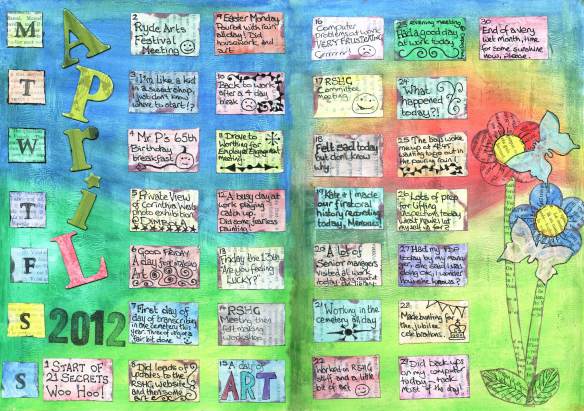 APRIL
2012
M
T
W
T
F
S
S
1 START OF
21 SECRETS
Woo Hoo!
2
Ryde Arts
Festival
Meeting
3 I'm like a kid
in a sweetshop,
I just don't know
where to start!?
4 Mr P's 65th
Birthday
breakfast
5 Private View
of Corinna Wagstaffs
photo exhibition
@ DIMBOLA
6 Good Friday
A day for making
Art
7 First day of
day of transcribing
in the cemetery this
year. Three of us got a
fair bit done
8 Did loads of
updates to the
RSHG website
and then some
9 Easter Monday
Poured with rain
all day! Did
housework and
art
10
Back to work
after a 4 day
break
11 Drove to
Worthing for
Employee Engagement
meeting
12 A busy day at
work playing
catch up.
Did some fearless
painting
13
Friday the 13th
"Are you feeling
LUCKY?"
14 RSHG
Meeting then
felt making
workshop
15 A day of
ART
16
Computer
problems at work
VERY FRUSTRATING
17 RSHG
Committee
meeting
18
Felt sad today
but don't know
why
19 Kate & I made
our first oral
history recording
today, Memories
20 A lot of
Senior managers
visited at work
21
Working in the
cemetery all day
22
Worked on RSHG
stuff, and a little
bit of art
evening meeting
Had a good day
at work today
24
What
happened
today?!
25 The boys woke
me up at 4.45
wanting to go out in
the pouring rain!
26 Lots of prep
for lifting
inspections today
27 Had my PDP
today by my manager
28
Made bunting for
the jubilee
celebrations
29 Did back ups
on my computer
today - took
most of the day!
30
End of a very
wet month, time
for some sunshine
now, please.